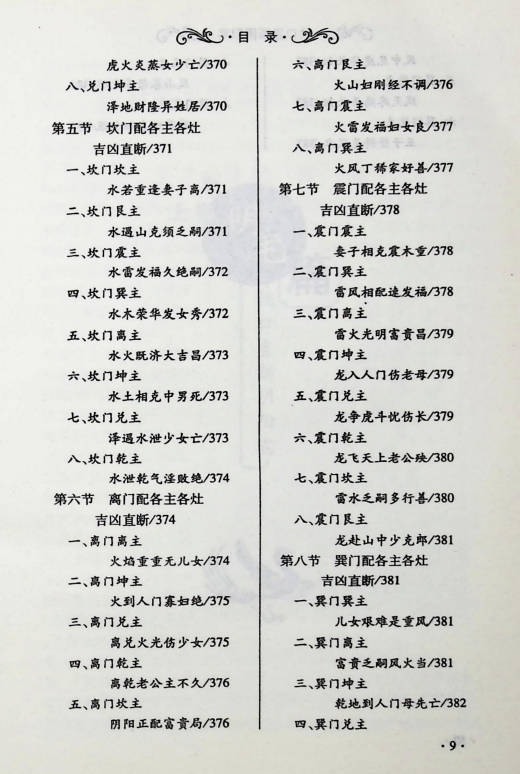 ·目 录·
虎火炎蒸女少亡/370
八、兑门坤主
泽地财隆异姓居/370
第五节 坎门配各主各灶
吉凶直断/371
一、坎门坎主
水若重逢妻子离/371
二、坎门艮主
水遇山克须乏嗣/371
三、坎门震主
水雷发福久绝嗣/372
四、坎门巽主
水木荣华发女秀/372
五、坎门离主
水火既济大吉昌/373
六、坎门坤主
水土相克中男死/373
七、坎门兑主
泽遇水泄少女亡/373
八、坎门乾主
水泄乾气淫败绝/374
第六节 离门配各主各灶
吉凶直断/374
一、离门离主
火焰重重无儿女/374
二、离门坤主
火到人门寡妇绝/375
三、离门兑主
离兑火光伤少女/375
四、离门乾主
离乾老公主不久/376
五、离门坎主
阴阳正配富贵局/376
六、离门艮主
火山妇刚经不调/376
七、离门震主
火雷发福妇女良/377
八、离门巽主
火风丁稀家好善/377
第七节 震门配各主各灶
吉凶直断/378
一、震门震主
妻子相克震木重/378
二、震门巽主
雷风相配速发福/378
三、震门离主
雷火光明富贵昌/379
四、震门坤主
龙入人门伤老母/379
五、震门兑主
龙争虎斗忧伤长/379
六、震门乾主
龙飞天上老公殃/380
七、震门坎主
雷水乏嗣多行善/380
八、震门艮主
龙赴山中少克郎/381
第八节 巽门配各主各灶
吉凶直断/381
一、巽门巽主
儿女艰难是重风/381
二、巽门离主
富贵乏嗣风火当/381
三、巽门坤主
乾地到人门母先亡/382
四、巽门兑主
·9·